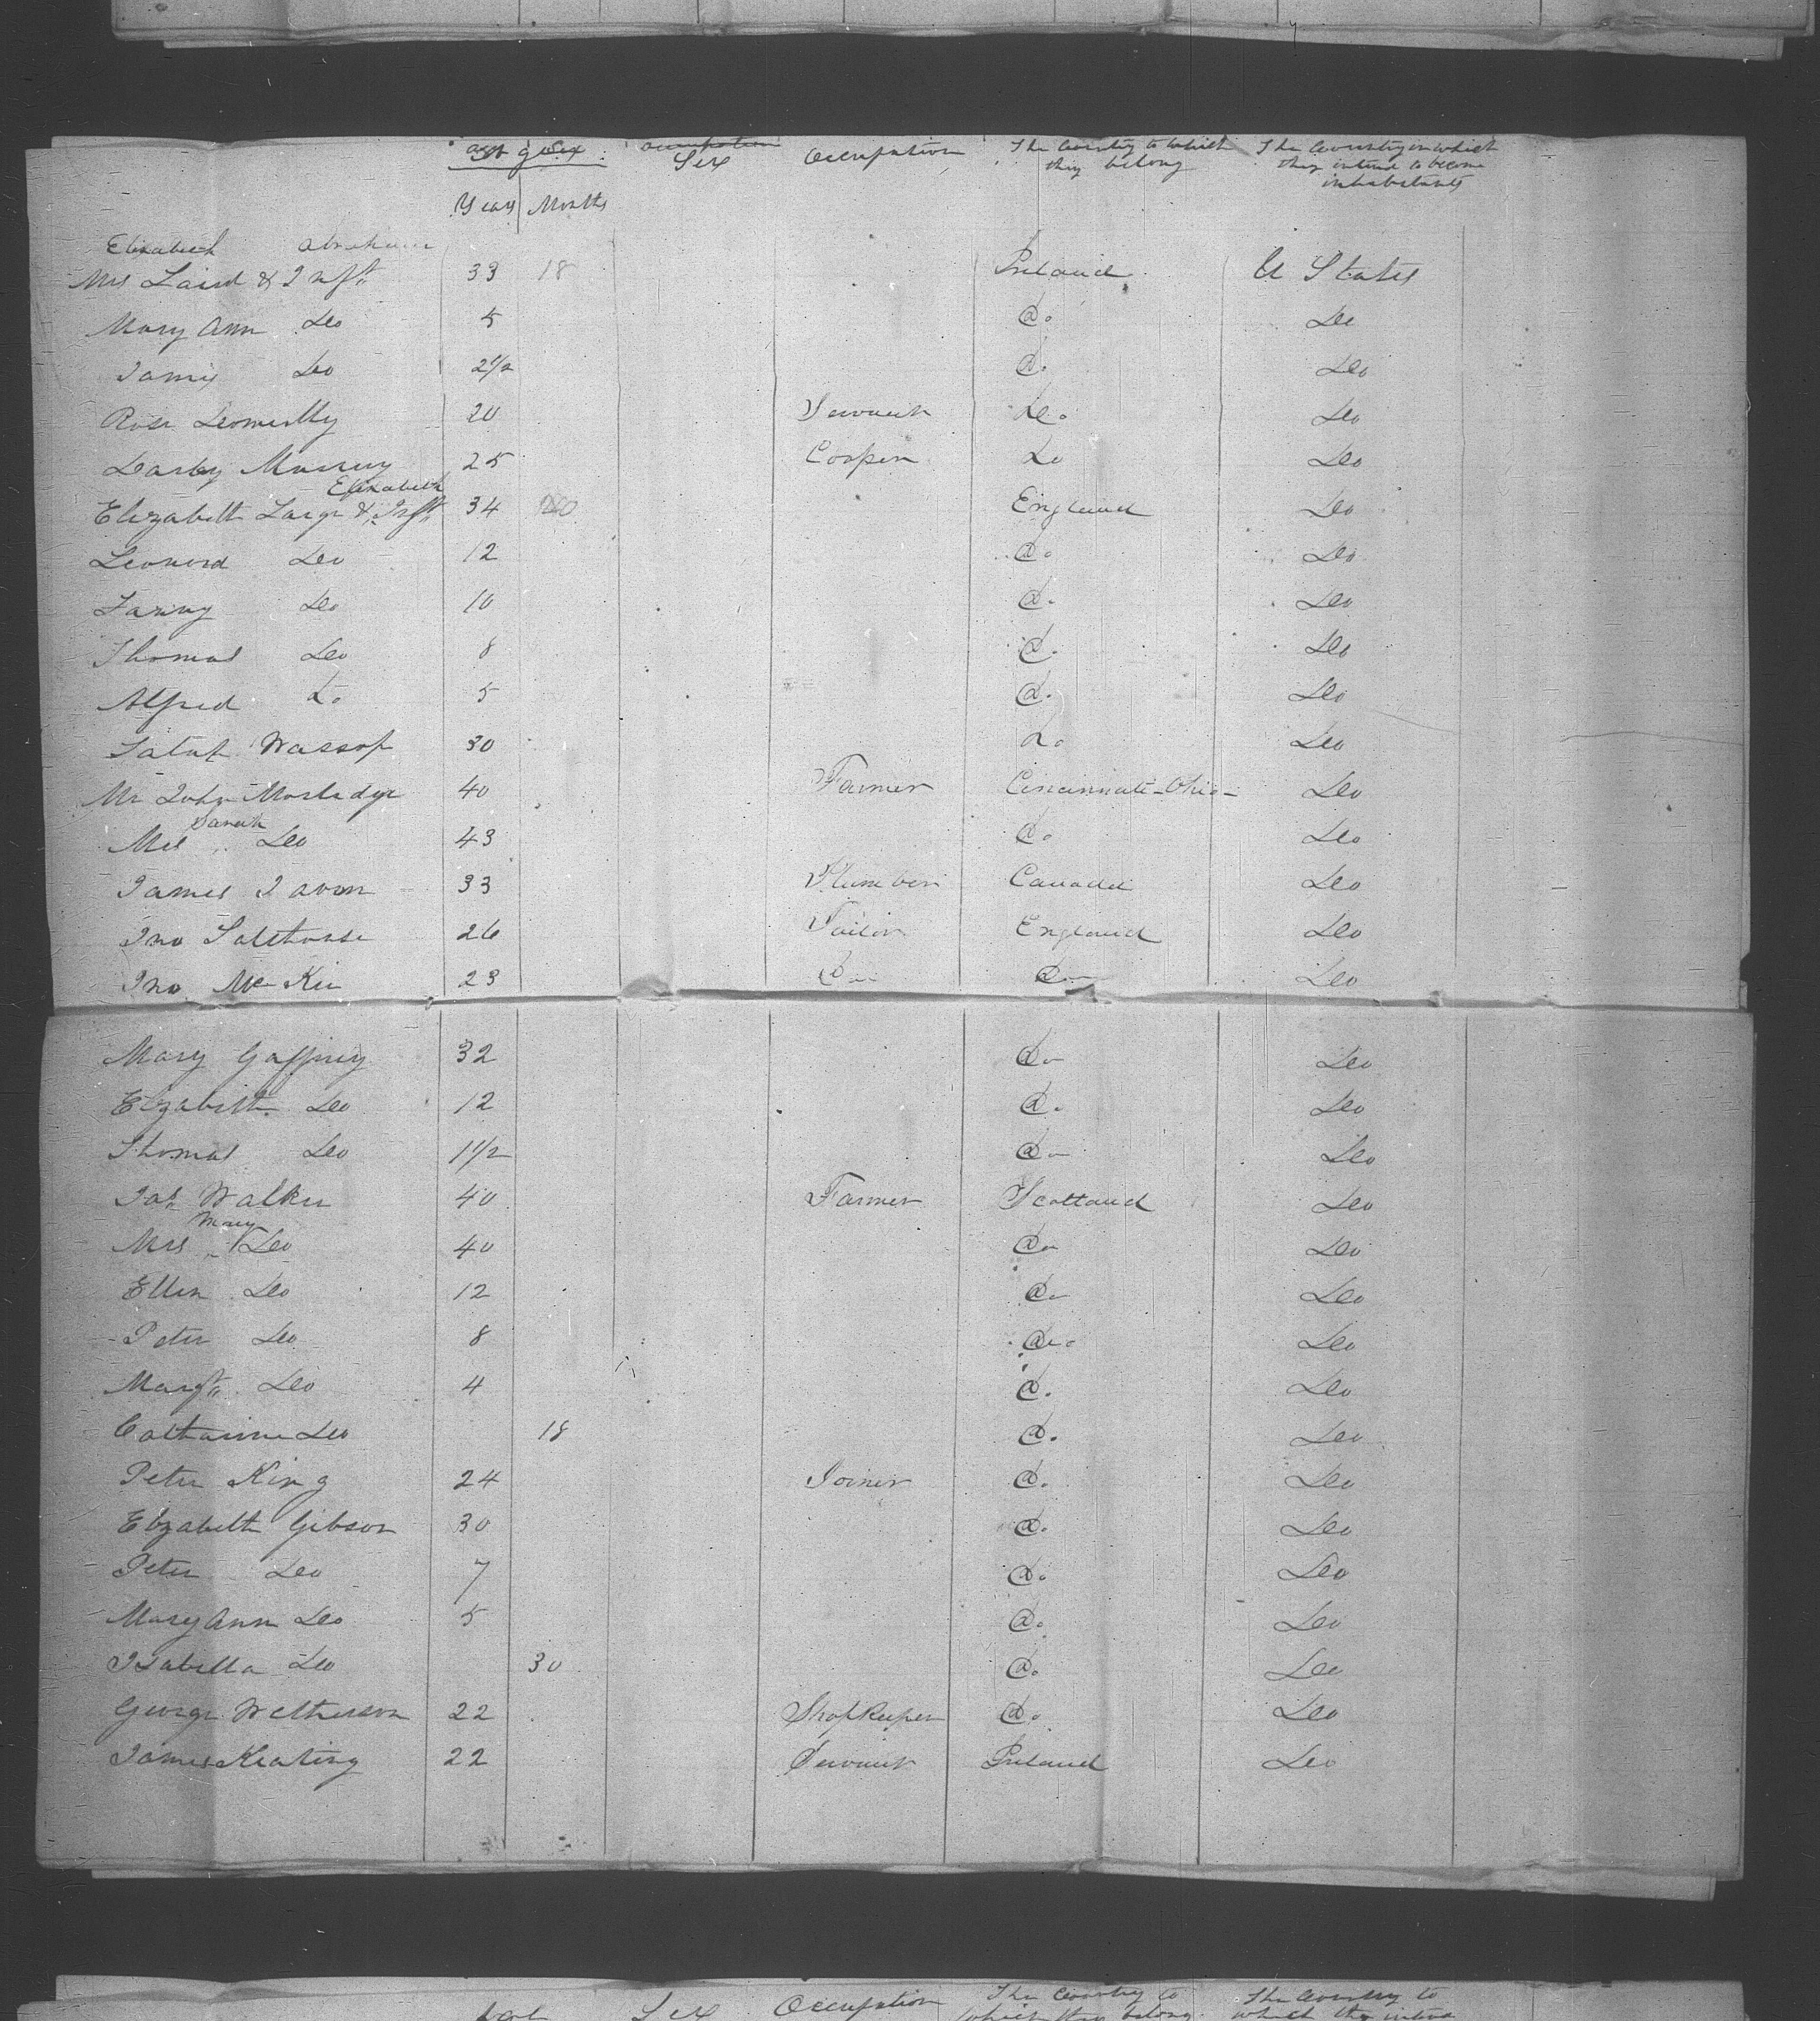 Sex Occupation The Country to which they belong The Country in which they intend to become inhabitants
Years Months
Elizabeth Abraham
Mrs Laird & Inft 33 18 Ireland U States
Mary Ann Do 5 Do Do
James Do 2 1/2 Do Do
Rose 20 Servant Do Do
Darby Murray 25 Cooper Do Do
Elizabeth
Elizabeth Large & Inft 34 England Do
Leonord Do 12 Do Do
Fanny Do 10 Do Do
Thomas Do 8 Do Do
Alfred Do 5 Do Do
Wassop 30 Do Do
Mr John 40 Farmer Cincinnati - Ohio - Do
Sarah
Mrs Do 43 Do Do
James 33 Plumber Canada Do
Jno Salthouse 26 Tailor England Do
Jno Mc Kie 23 Do Do Do
Mary Gaffney 32 Do Do
Elizabeth Do 12 Do Do
Thomas Do 1 1/2 Do Do
Jas Walker 40 Farmer Scotland Do
Mary
Mrs Do 40 Do Do
Ellen Do 12 Do Do
Peter Do 8 Do Do
Margt Do 4 Do Do
Catharine Do 18 Do Do
Peter King 24 Joiner Do Do
Elizabeth Gibson 30 Do Do
Peter Do 7 Do Do
Mary Ann Do 5 Do Do
Isabella Do 30 Do Do
George Wetherson 22 Shopkeeper Do Do
James Keating 22 Servant Ireland Do
Sex Occupation The Country to The Country to
which they belong which they